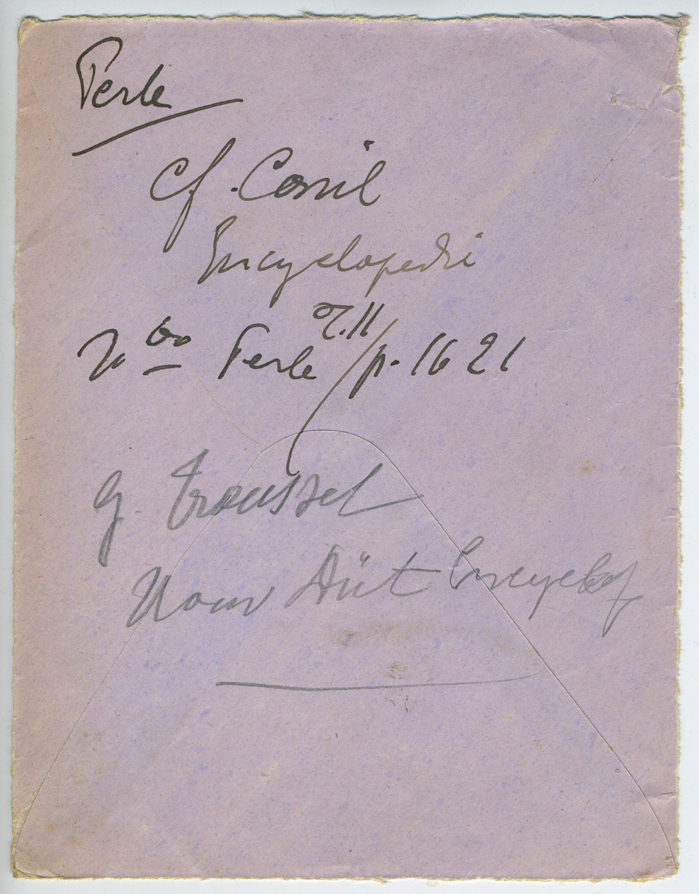 Perle
cf. Conil
Encyclopedi
T.II
Perle / p. 1621
J. Troussel
Nouv Dict Encyclop